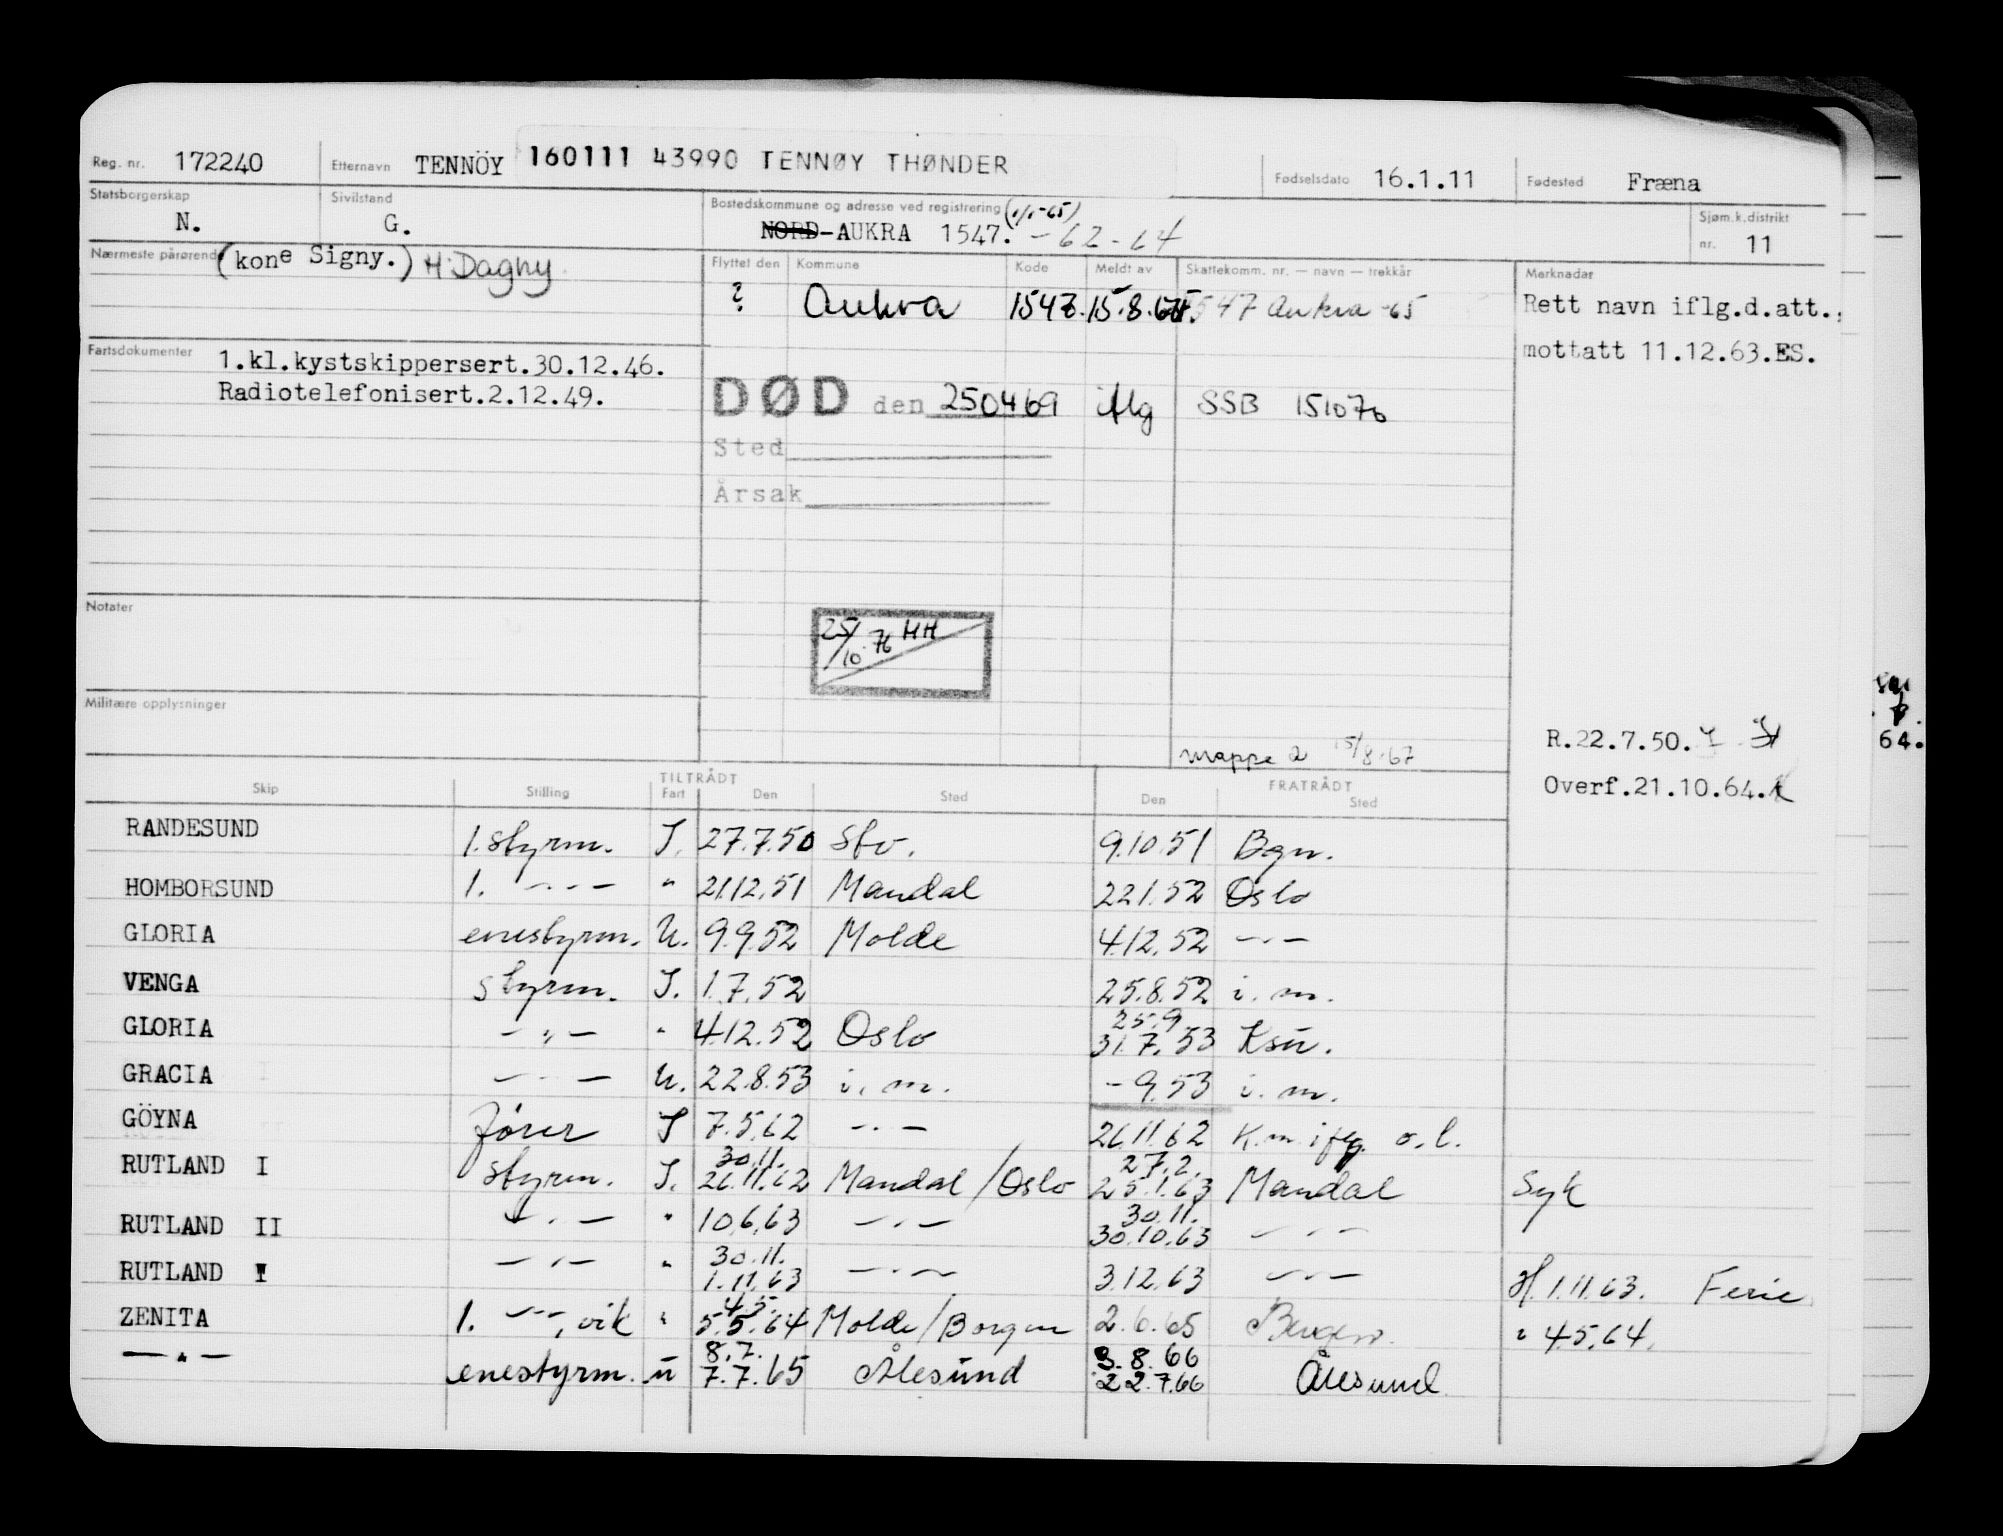 Reg. nr. 172240 Etternavn TENNÖY 160111 43990 TENNØY THØNDER Fødselsdato 16.1.11 Fødested Fræna
Statsborgerskap N. Sivilstand G. Bostedskommune og adresse ved registrering (1/1-65) Sjøm.k.distrikt
NORD-AUKRA 1547. -62-64 nr. 11
Nærmeste pårørende (kone Signy.) H: Dagny Flyttet den Kommune Kode Meldt av Skattekomm. nr. — navn — trekkår Merknader
? Aukra 1547. 15.8.67. 1547 Aukra -65 Rett navn iflg.d.att.,
mottatt 11.12.63.ES.
Fartsdokumenter 1.kl.kystskippersert.30.12.46.
Radiotelefonisert.2.12.49.
DØD den 250469 iflg SSB 151076
Sted
Årsak
Notater
25/10-76 HH
Militære opplysninger
R.22.7.50.
mappe 2 15/8-67
Overf.21.10.64.
TILTRÅDT FRATRÅDT
Skip Stilling Fart Den Sted Den Sted
RANDESUND 1.styrm. I. 27.7.50 Stv. 9.10.51 Bgn.
HOMBORSUND 1. -"- " 21.12.51 Mandal 22.1.52 Oslo
GLORIA enestyrm. U. 9.9.52 Molde 4.12.52 -"-
VENGA styrm. I. 1.7.52 25.8.52 i. m.
25.9
GLORIA -"- " 4.12.52 Oslo 31.7.53 Ksu.
GRACIA -"- U. 22.8.53 i. m. -9.53 i. m.
GÖYNA fører I 7.5.62 -"- 26.11.62 K.m. iflg. o.l.
30.11. 27.2.
RUTLAND I styrm. I. 26.11.62 Mandal/Oslo 25.1.63 Mandal Syk
30.11.
RUTLAND II -"- " 10.6.63 -"- 30.10.63 -"-
30.11.
RUTLAND I -"- " 1.11.63 -"- 3.12.63 -"- H. 1.11.63. Ferie
4.5.
ZENITA 1. -"-, vik " 5.5.64 Molde/Borgen 2.6.65 Bergen. " 4.5.64.
8.7. 3.8.66
-"- enestyrm. u 7.7.65 Ålesund 22.7.66 Ålesund
64.